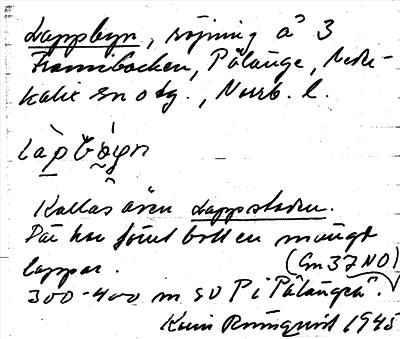 Lappbyn, röjning å 3
Frambacken, Pålänge, Neder-
kalix sn o tg., Norrb. l.
Kallas även Lappstaden.
Där har förut bott en mängd
lappar. (Gn 37 NO)
300-400 m SO P i "Pålängeå".
1945